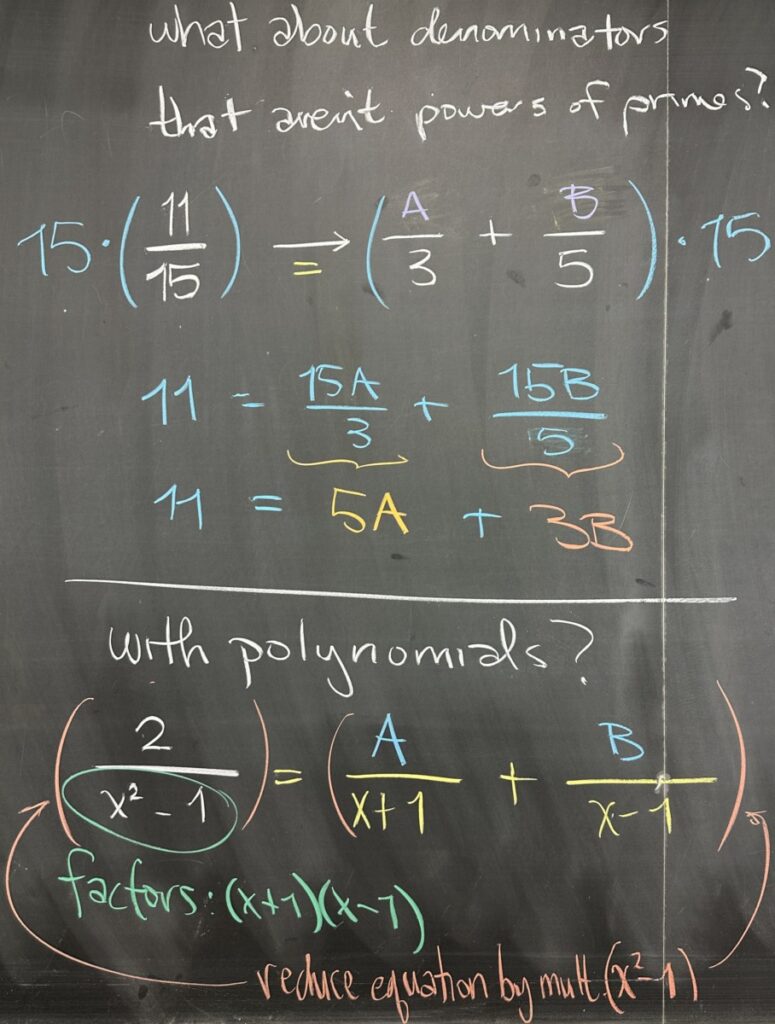 what about denominators
that aren't powers of primes?
15·(11/15) → = (A/3 + B/5)·15
11 = 15A/3 + 15B/5
11 = 5A + 3B
with polynomials?
(2/(x² - 1)) = (A/(x+1) + B/(x-1))
factors: (x+1)(x-1)
reduce equation by mult. (x²-1)